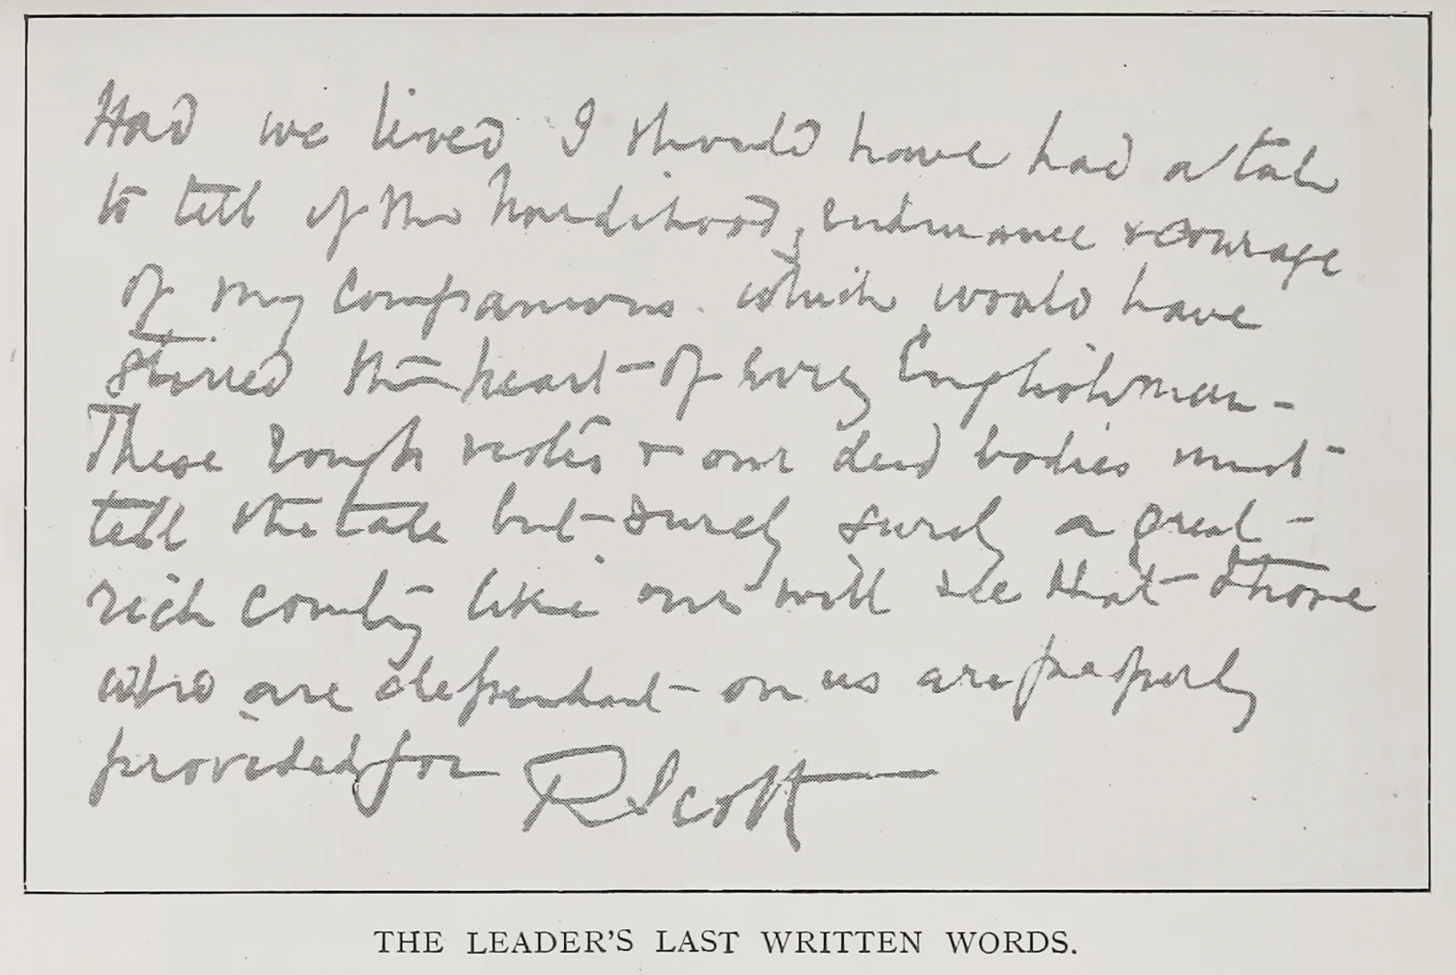 Had we lived I should have had a tale
to tell of the hardihood, endurance & courage
of my companions. which would have
stirred the heart of every Englishman -
These rough notes & our dead bodies must
tell the tale but surely surely a great
rich country like ours will see that those
who are dependent on us are properly
provided for R Scott
THE LEADER'S LAST WRITTEN WORDS.